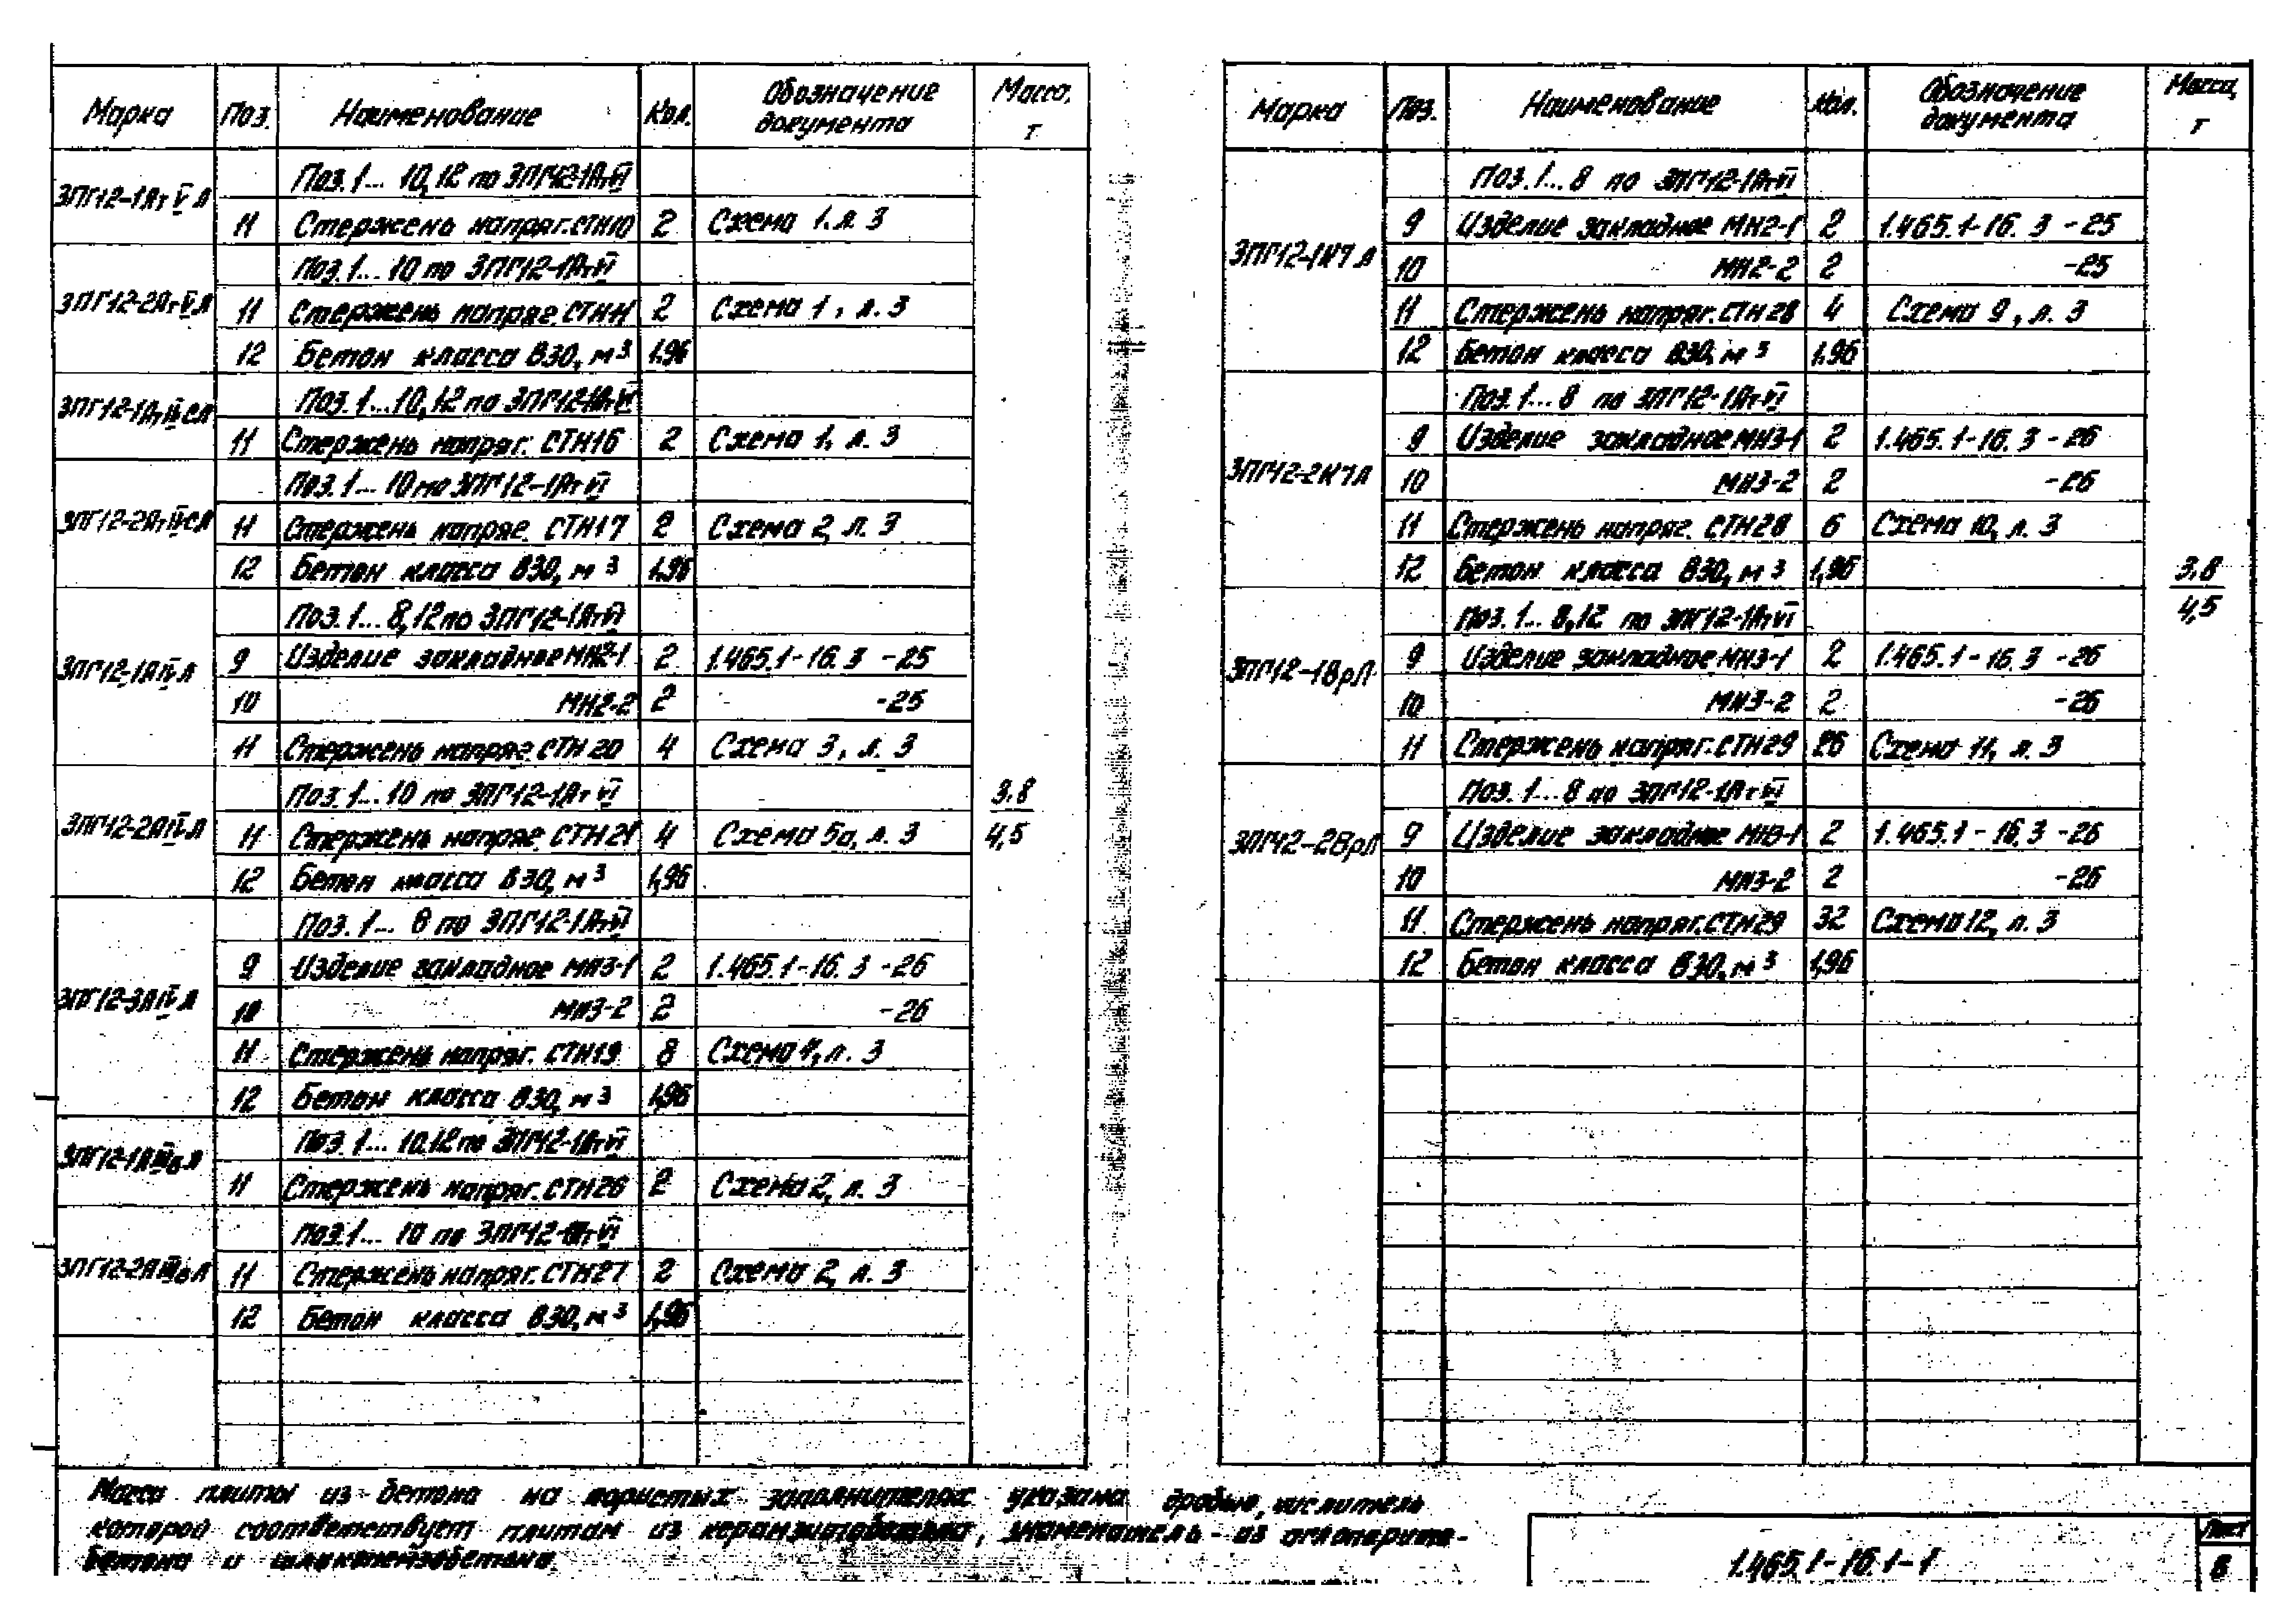 Марка Поз. Наименование Кол. Обозначение документа Масса, т
3ПГ12-1АтⅤЛ
Поз. 1... 10, 12 по 3ПГ12-1АтⅥ
11 Стержень напряг. СТН10 2 Схема 1. л. 3
3ПГ12-2АтⅤЛ
Поз. 1... 10 по 3ПГ12-1АтⅥ
11 Стержень напряг. СТН11 2 Схема 1, л. 3
12 Бетон класса В30, м³ 1,96
Поз. 1...10, 12 по 3ПГ12-1АтⅥ
11 Стержень напряг. СТН16 2 Схема 1, л. 3
Поз. 1... 10 по 3ПГ12-1АтⅥ
11 Стержень напряг. СТН17 2 Схема 2, л. 3
12 Бетон класса В30, м³ 1,96
3ПГ12-1АⅣЛ
Поз. 1... 8, 12 по 3ПГ12-1АтⅥ
9 Изделие закладное МН2-1 2 1.465.1-16.3 -25
10 МН2-2 2 -25
11 Стержень напряг. СТН20 4 Схема 3, л. 3
3ПГ12-2АⅣЛ
Поз. 1... 10 по 3ПГ12-1АтⅥ
11 Стержень напряг. СТН21 4 Схема 5а, л. 3
12 Бетон класса В30, м³ 1,96
3,8
4,5
3ПГ12-3АⅣЛ
Поз. 1... 8 по 3ПГ12-1АтⅥ
9 Изделие закладное МН3-1 2 1.465.1-16.3 -26
10 МН3-2 2 -26
11 Стержень напряг. СТН19 8 Схема л. 3
12 Бетон класса В30, м³ 1,96
3ПГ12-1АⅢвЛ
Поз. 1... 10, 12 по 3ПГ12-1АтⅥ
11 Стержень напряг. СТН26 2 Схема 2, л. 3
3ПГ12-2АⅢвЛ
Поз. 1... 10 по 3ПГ12-1АтⅥ
11 Стержень напряг. СТН27 2 Схема 2, л. 3
12 Бетон класса В30, м³ 1,96
Марка Поз. Наименование Кол. Обозначение документа Масса, т
3ПГ12-1К7Л
Поз. 1... 8 по 3ПГ12-1АтⅥ
9 Изделие закладное МН2-1 2 1.465.1-16.3 -25
10 МН2-2 2 -25
11 Стержень напряг. СТН28 4 Схема 9, л. 3
12 Бетон класса В30, м³ 1,96
3ПГ12-2К7Л
Поз. 1... 8 по 3ПГ12-1АтⅥ
9 Изделие закладное МН3-1 2 1.465.1-16.3 -26
10 МН3-2 2 -26
11 Стержень напряг. СТН28 6 Схема 10, л. 3
12 Бетон класса В30, м³ 1,96
3,8
4,5
3ПГ12-1ВрЛ
Поз. 1... 8, 12 по 3ПГ12-1АтⅥ
9 Изделие закладное МН3-1 2 1.465.1-16.3 -26
10 МН3-2 2 -26
11 Стержень напряг. СТН29 26 Схема 11, л. 3
3ПГ12-2ВрЛ
Поз. 1... 8 по 3ПГ12-1АтⅥ
9 Изделие закладное МН3-1 2 1.465.1-16.3 -26
10 МН3-2 2 -26
11 Стержень напряг. СТН29 32 Схема 12, л. 3
12 Бетон класса В30, м³ 1,96
Масса плиты из бетона на пористых заполнителях указана дробью, числитель
которой соответствует плитам из керамзитобетона, знаменатель - из аглопорито-
бетона и шлакопемзобетона.
1.465.1-16.1-1
Лист
8